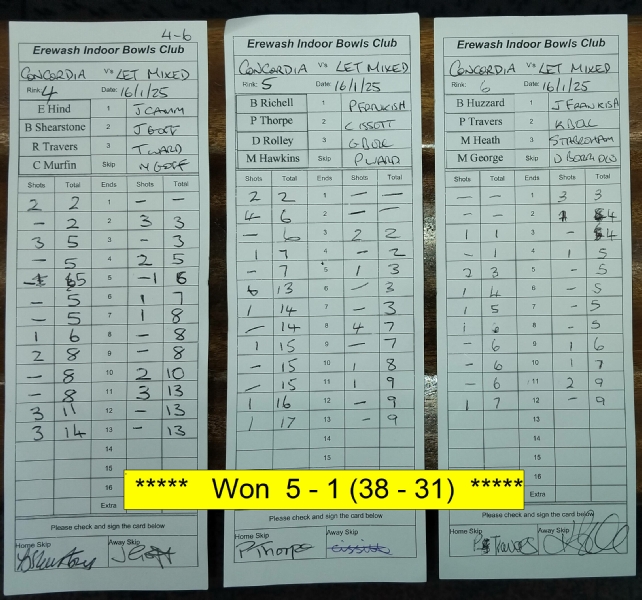 4-6
Erewash Indoor Bowls Club
CONCORDIA V's LET MIXED
Rink: 4 Date: 16/1/25
E Hind 1 J CAVIM
B Shearstone 2 J GOFF
R Travers 3 T WARD
C Murfin Skip M GOFF
Shots Total Ends Shots Total
2 2 1 - -
- 2 2 3 3
3 5 3 - 3
- 5 4 2 5
5 5 1 6
- 5 6 1 7
- 5 7 1 8
1 6 8 - 8
2 8 9 - 8
- 8 10 2 10
- 8 11 3 13
3 11 12 - 13
3 14 13 - 13
14
15
16
Extra
Please check and sign the card below
Home Skip Away Skip
J Goff
Erewash Indoor Bowls Club
CONCORDIA V's LET MIXED
Rink: 5 Date: 16/1/25
B Richell 1 P FRANKISH
P Thorpe 2 C ISSOTT
D Rolley 3 G BULL
M Hawkins Skip P WARD
Shots Total Ends Shots Total
2 2 1 - -
4 6 2 - -
- 6 3 2 2
1 7 4 - 2
- 7 5 1 3
6 13 6 - 3
1 14 7 - 3
- 14 8 4 7
1 15 9 - 7
- 15 10 1 8
- 15 11 1 9
1 16 12 - 9
1 17 13 - 9
14
15
Please check and sign the card below
Home Skip Away Skip
P Thorpe
Erewash Indoor Bowls Club
CONCORDIA V's LET MIXED
Rink: 6 Date: 16/1/25
B Huzzard 1 J FRANKISH
P Travers 2 K BULL
M Heath 3
M George Skip
Shots Total Ends Shots Total
- - 1 3 3
- - 2 1 4
1 1 3 - 4
- 1 4 1 5
2 3 5 - 5
1 4 6 - 5
1 5 7 - 5
1 6 8 - 5
- 6 9 1 6
- 6 10 1 7
- 6 11 2 9
1 7 12 - 9
13
14
15
16
Extra
Please check and sign the card below
Home Skip Away Skip
P Travers
***** Won 5 - 1 (38 - 31) *****